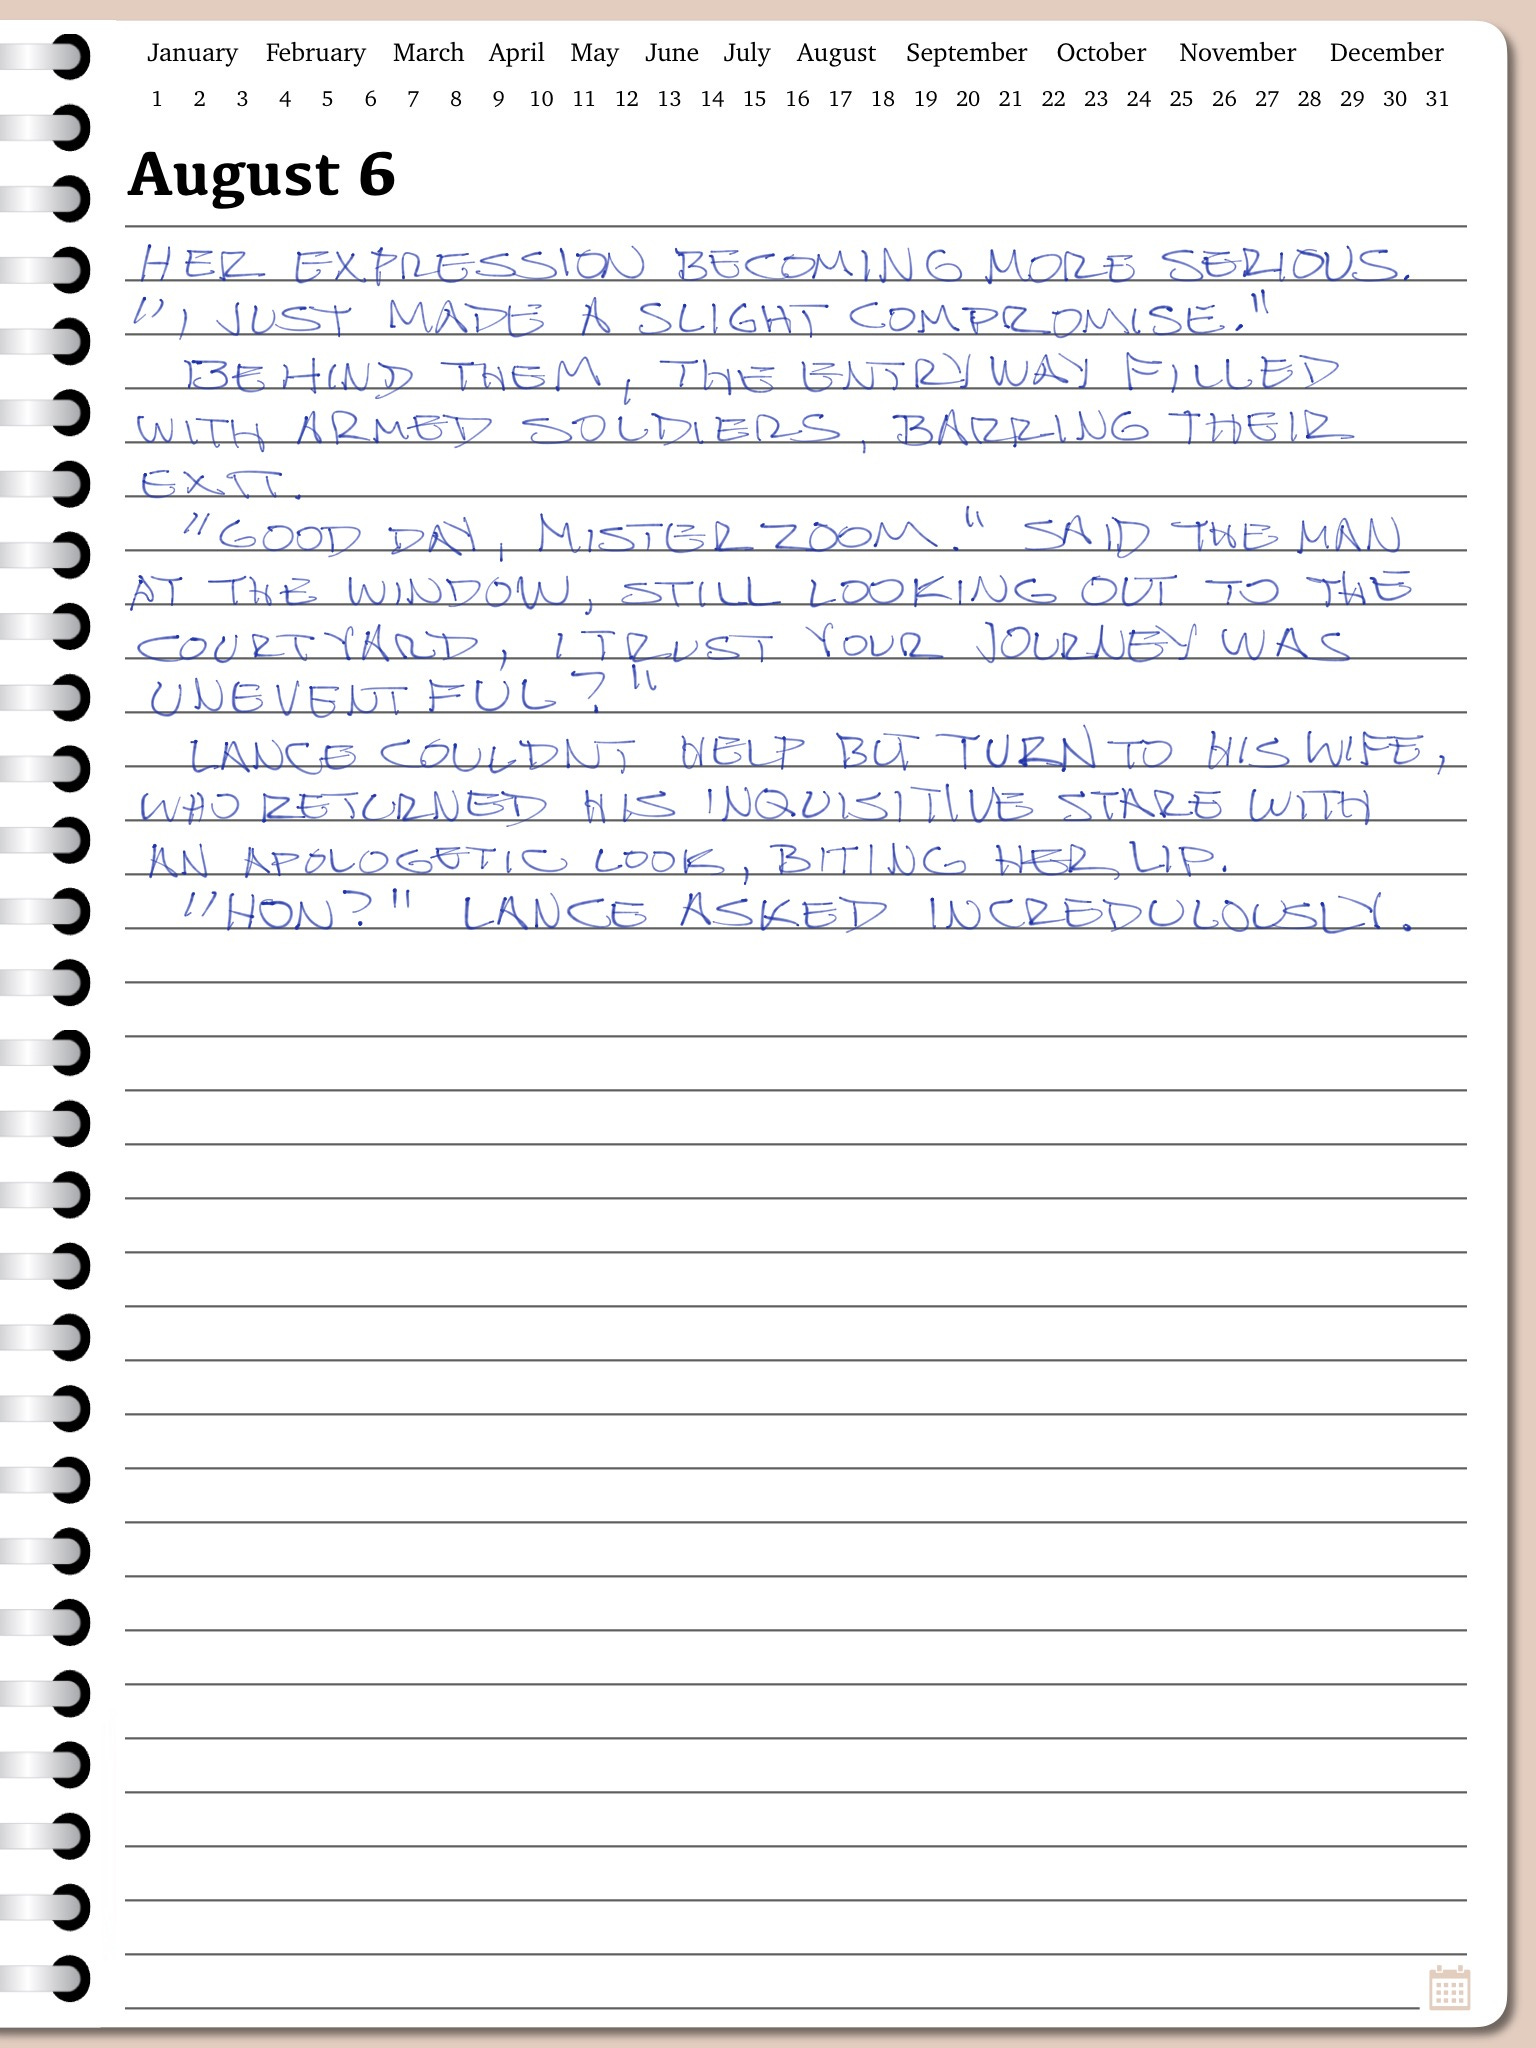 January February March April May June July August September October November December
1 2 3 4 5 6 7 8 9 10 11 12 13 14 15 16 17 18 19 20 21 22 23 24 25 26 27 28 29 30 31
August 6
HER EXPRESSION BECOMING MORE SERIOUS.
"I JUST MADE A SLIGHT COMPROMISE."
BEHIND THEM, THE ENTRYWAY FILLED
WITH ARMED SOLDIERS, BARRING THEIR
EXIT.
"GOOD DAY, MISTER ZOOM." SAID THE MAN
AT THE WINDOW, STILL LOOKING OUT TO THE
COURTYARD, I TRUST YOUR JOURNEY WAS
UNEVENTFUL?"
LANCE COULDN'T HELP BUT TURN TO HIS WIFE,
WHO RETURNED HIS INQUISITIVE STARE WITH
AN APOLOGETIC LOOK, BITING HER LIP.
"HON?" LANCE ASKED INCREDULOUSLY.